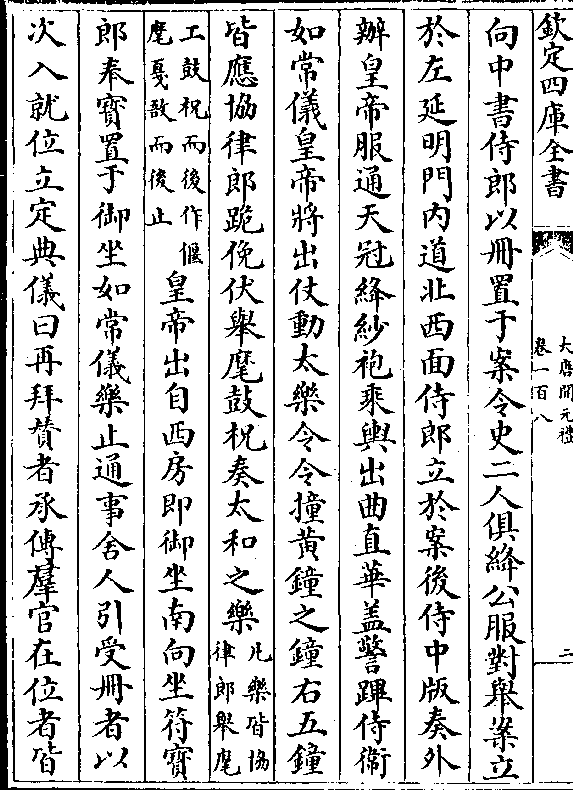 欽定四庫全書
大唐開元禮
卷一百八
二
向中書侍郎以冊置于案令史二人俱絳公服對舉案立
於左延明門內道北西面侍郎立於案後侍中版奏外
辦皇帝服通天冠絳紗袍乘輿出曲直華蓋警蹕侍衛
如常儀皇帝將出仗動太樂令令撞黃鐘之鐘右五鐘
皆應協律郎跪俛伏舉麾鼓柷奏太和之樂
凡樂皆協
律郎舉麾
工鼓柷而後作偃
麾戛敔而後止
皇帝出自西房即御坐南向坐符寶
郎奉寶置于御坐如常儀樂止通事舍人引受冊者以
次入就位立定典儀曰再拜贊者承傳羣官在位者皆